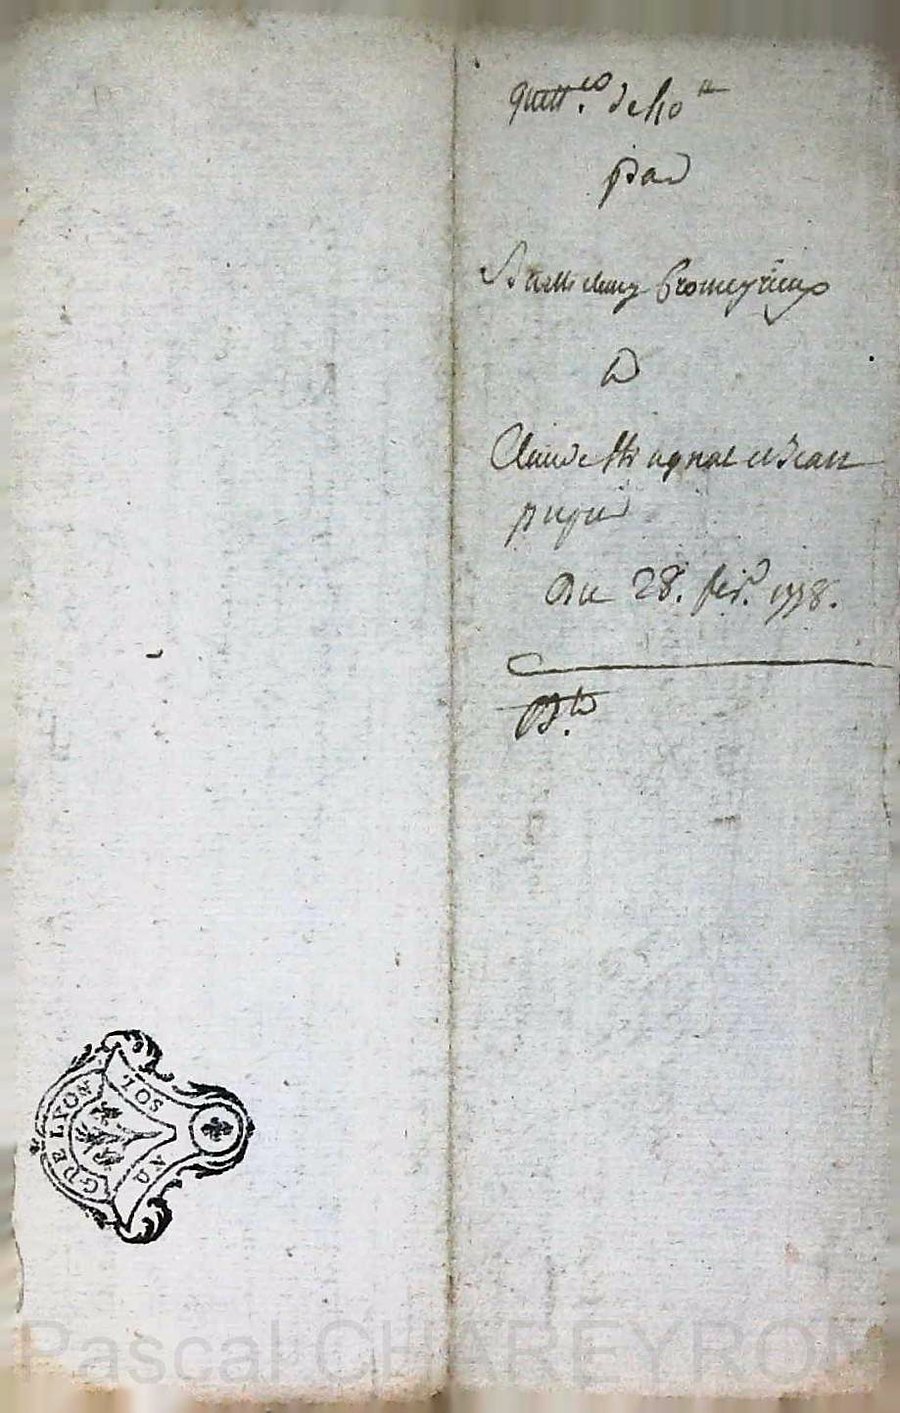 quitt.ce de 40 tt
par
Barthelemy Bromeyrieux
a
Claude Magnat et Jean
puque
Du 28. fev.r 1778.
G DE LYON
UN SOL
Pascal CHAREYRON